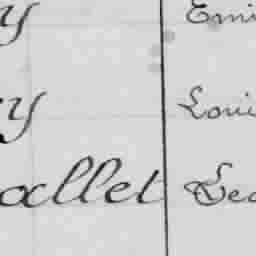 y Emi
y Loui
allet Leo